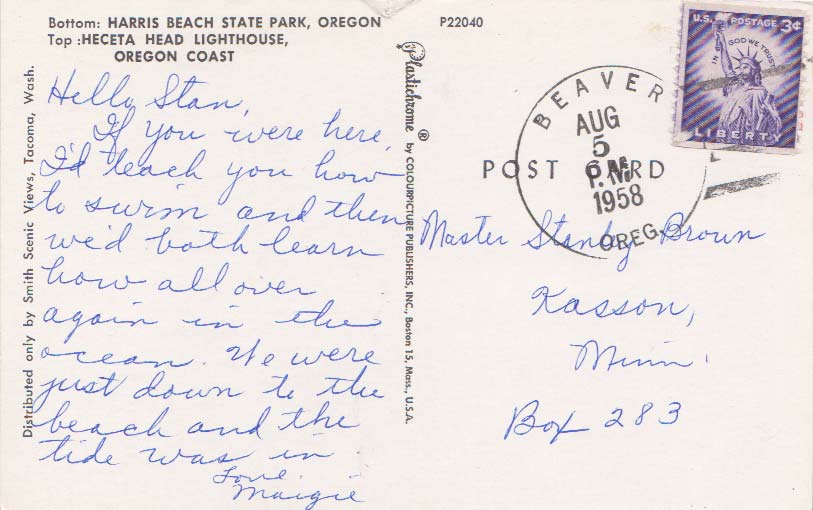 Bottom: HARRIS BEACH STATE PARK, OREGON
Top :HECETA HEAD LIGHTHOUSE,
OREGON COAST
P22040
Hello Stan,
If you were here,
I'd teach you how
to swim and then
we'd both learn
how all over
again in the
ocean. We were
just down to the
beach and the
tide was in
Love,
Margie
Distributed only by Smith Scenic Views, Tacoma, Wash.
Plastichrome ® by COLOURPICTURE PUBLISHERS, INC., Boston 15, Mass., U.S.A.
POST CARD
BEAVER
AUG
5
P.M.
1958
OREG.
U.S. POSTAGE 3¢
IN GOD WE TRUST
LIBERTY
Master Stanley Brown
Kasson,
Minn.
Box 283